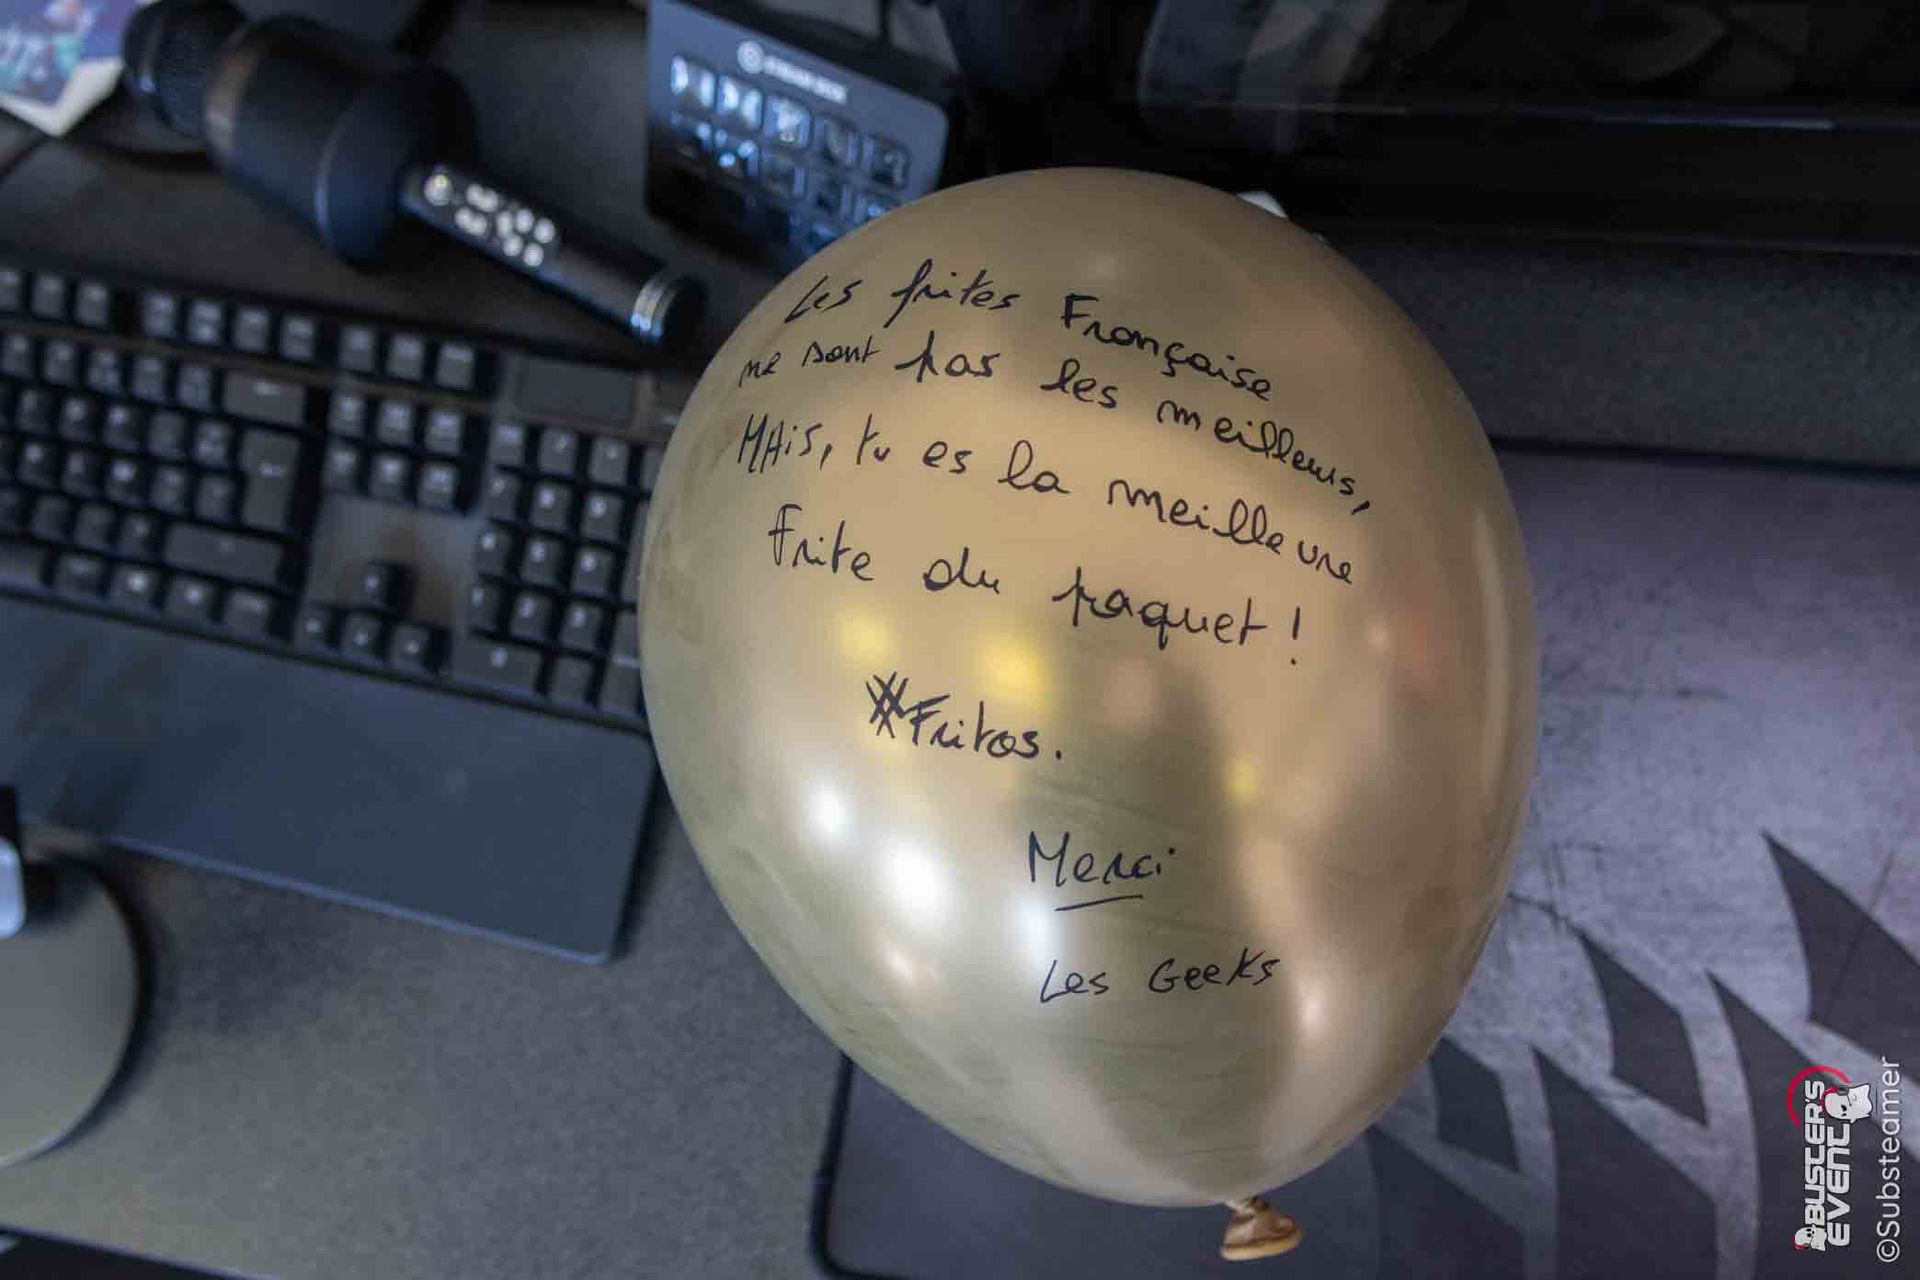 Les frites Française
ne sont pas les meilleurs,
MAis, tu es la meilleure
frite du paquet !
#Fritos.
Merci
Les Geeks
BUSTER'S
EVENT
©Substeamer